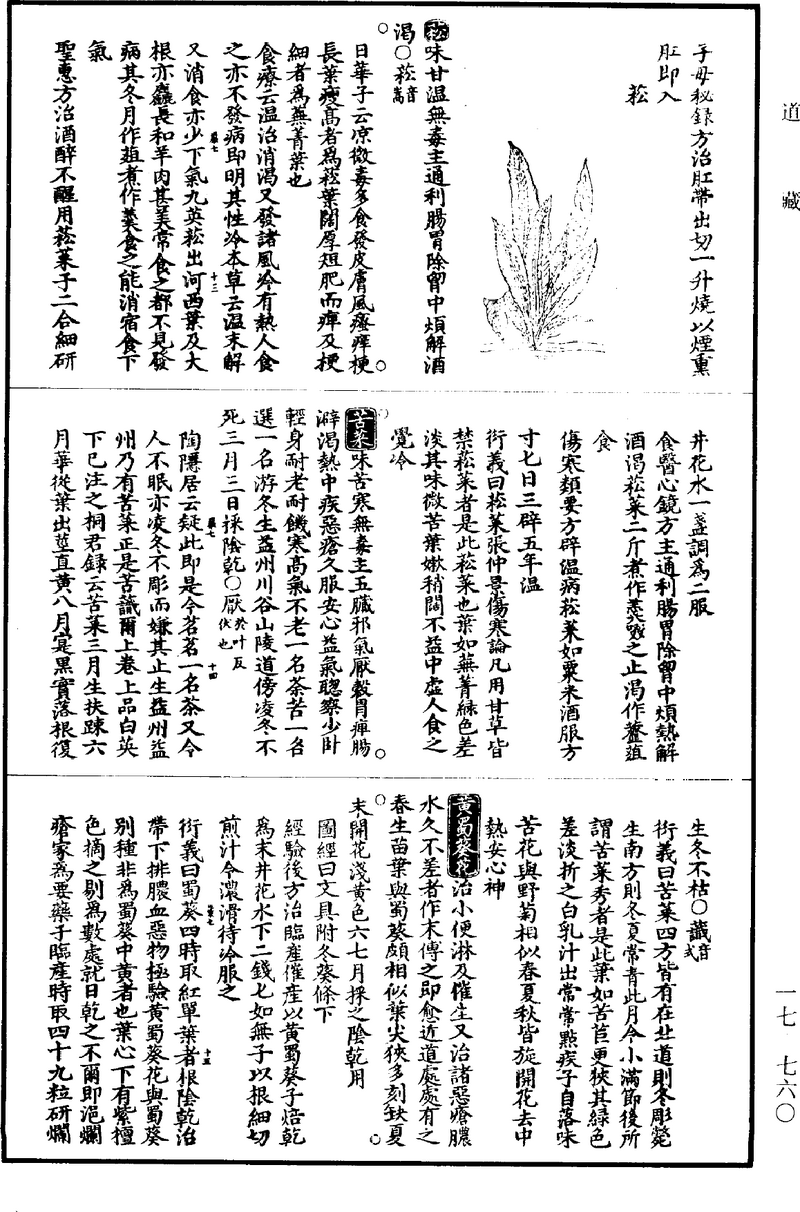 道藏
子母秘錄方治肛帶出切一升燒以煙熏
肛即入
菘
菘味甘溫無毒主通利腸胃除胷中煩解酒
渴○菘音嵩
日華子云凉微毒多食發皮膚風瘙痒梗
長葉瘦高者為菘葉闊厚短肥而痺及梗
細者為蕪菁葉也
食療云溫治消渴又發諸風冷有熱人食
之亦不發病即明其性冷本草云溫未解
又消食亦少下氣九英菘出河西葉及大
根亦麤長和羊肉甚美常食之都不見發
病其冬月作葅煮作羹食之能消宿食下
氣
聖惠方治酒醉不醒用菘菜子二合細研
井花水一盞調為二服
食醫心鏡方主通利腸胃除胷中煩熱解
酒渴菘菜二斤煮作羹啜之止渴作虀葅
食
傷寒類要方辟溫病菘菜如粟米酒服方
寸七日三辟五年溫
衍義曰菘菜張仲景傷寒論凡用甘草皆
禁菘菜者是此菘菜也葉如蕪菁綠色差
淡其味微苦葉嫩稍闊不益中虛人食之
覺冷
苦菜味苦寒無毒主五臟邪氣厭穀胃痺腸
澼渴熱中疾惡瘡久服安心益氣聰察少卧
輕身耐老耐饑寒高氣不老一名荼苦一名
選一名游冬生益州川谷山陵道傍凌冬不
死三月三日採陰乾○厭於叶反伏也
陶隱居云疑此即是今茗茗一名荼又令
人不眠亦凌冬不彫而嫌其止生益州益
州乃有苦菜正是苦蘵爾上卷上品白英
下已注之桐君錄云苦菜三月生扶踈六
月華從葉出莖直黃八月實黑實落根復
生冬不枯○蘵音式
衍義曰苦菜四方皆有在北道則冬彫斃
生南方則冬夏常青此月令小滿節後所
謂苦菜秀者是此葉如苦苣更狹其綠色
差淡折之白乳汁出常常點疣子自落味
苦花與野菊相似春夏秋皆旋開花去中
熱安心神
黃蜀葵花治小便淋及催生又治諸惡瘡膿
水久不差者作末傅之即愈近道處處有之
春生苗葉與蜀葵頗相似葉尖狹多刻缺夏
末開花淺黃色六七月採之陰乾用
圖經曰文具附冬葵條下
經驗後方治臨產催產以黃蜀葵子焙乾
為末井花水下二錢匕如無子以根細切
煎汁令濃滑待冷服之
衍義曰蜀葵四時取紅單葉者根陰乾治
帶下排膿血惡物極驗黃蜀葵花與蜀葵
別種非為蜀葵中黃者也葉心下有紫檀
色摘之剔為數處就日乾之不爾即浥爛
瘡家為要藥子臨產時取四十九粒研爛
一七 七六〇